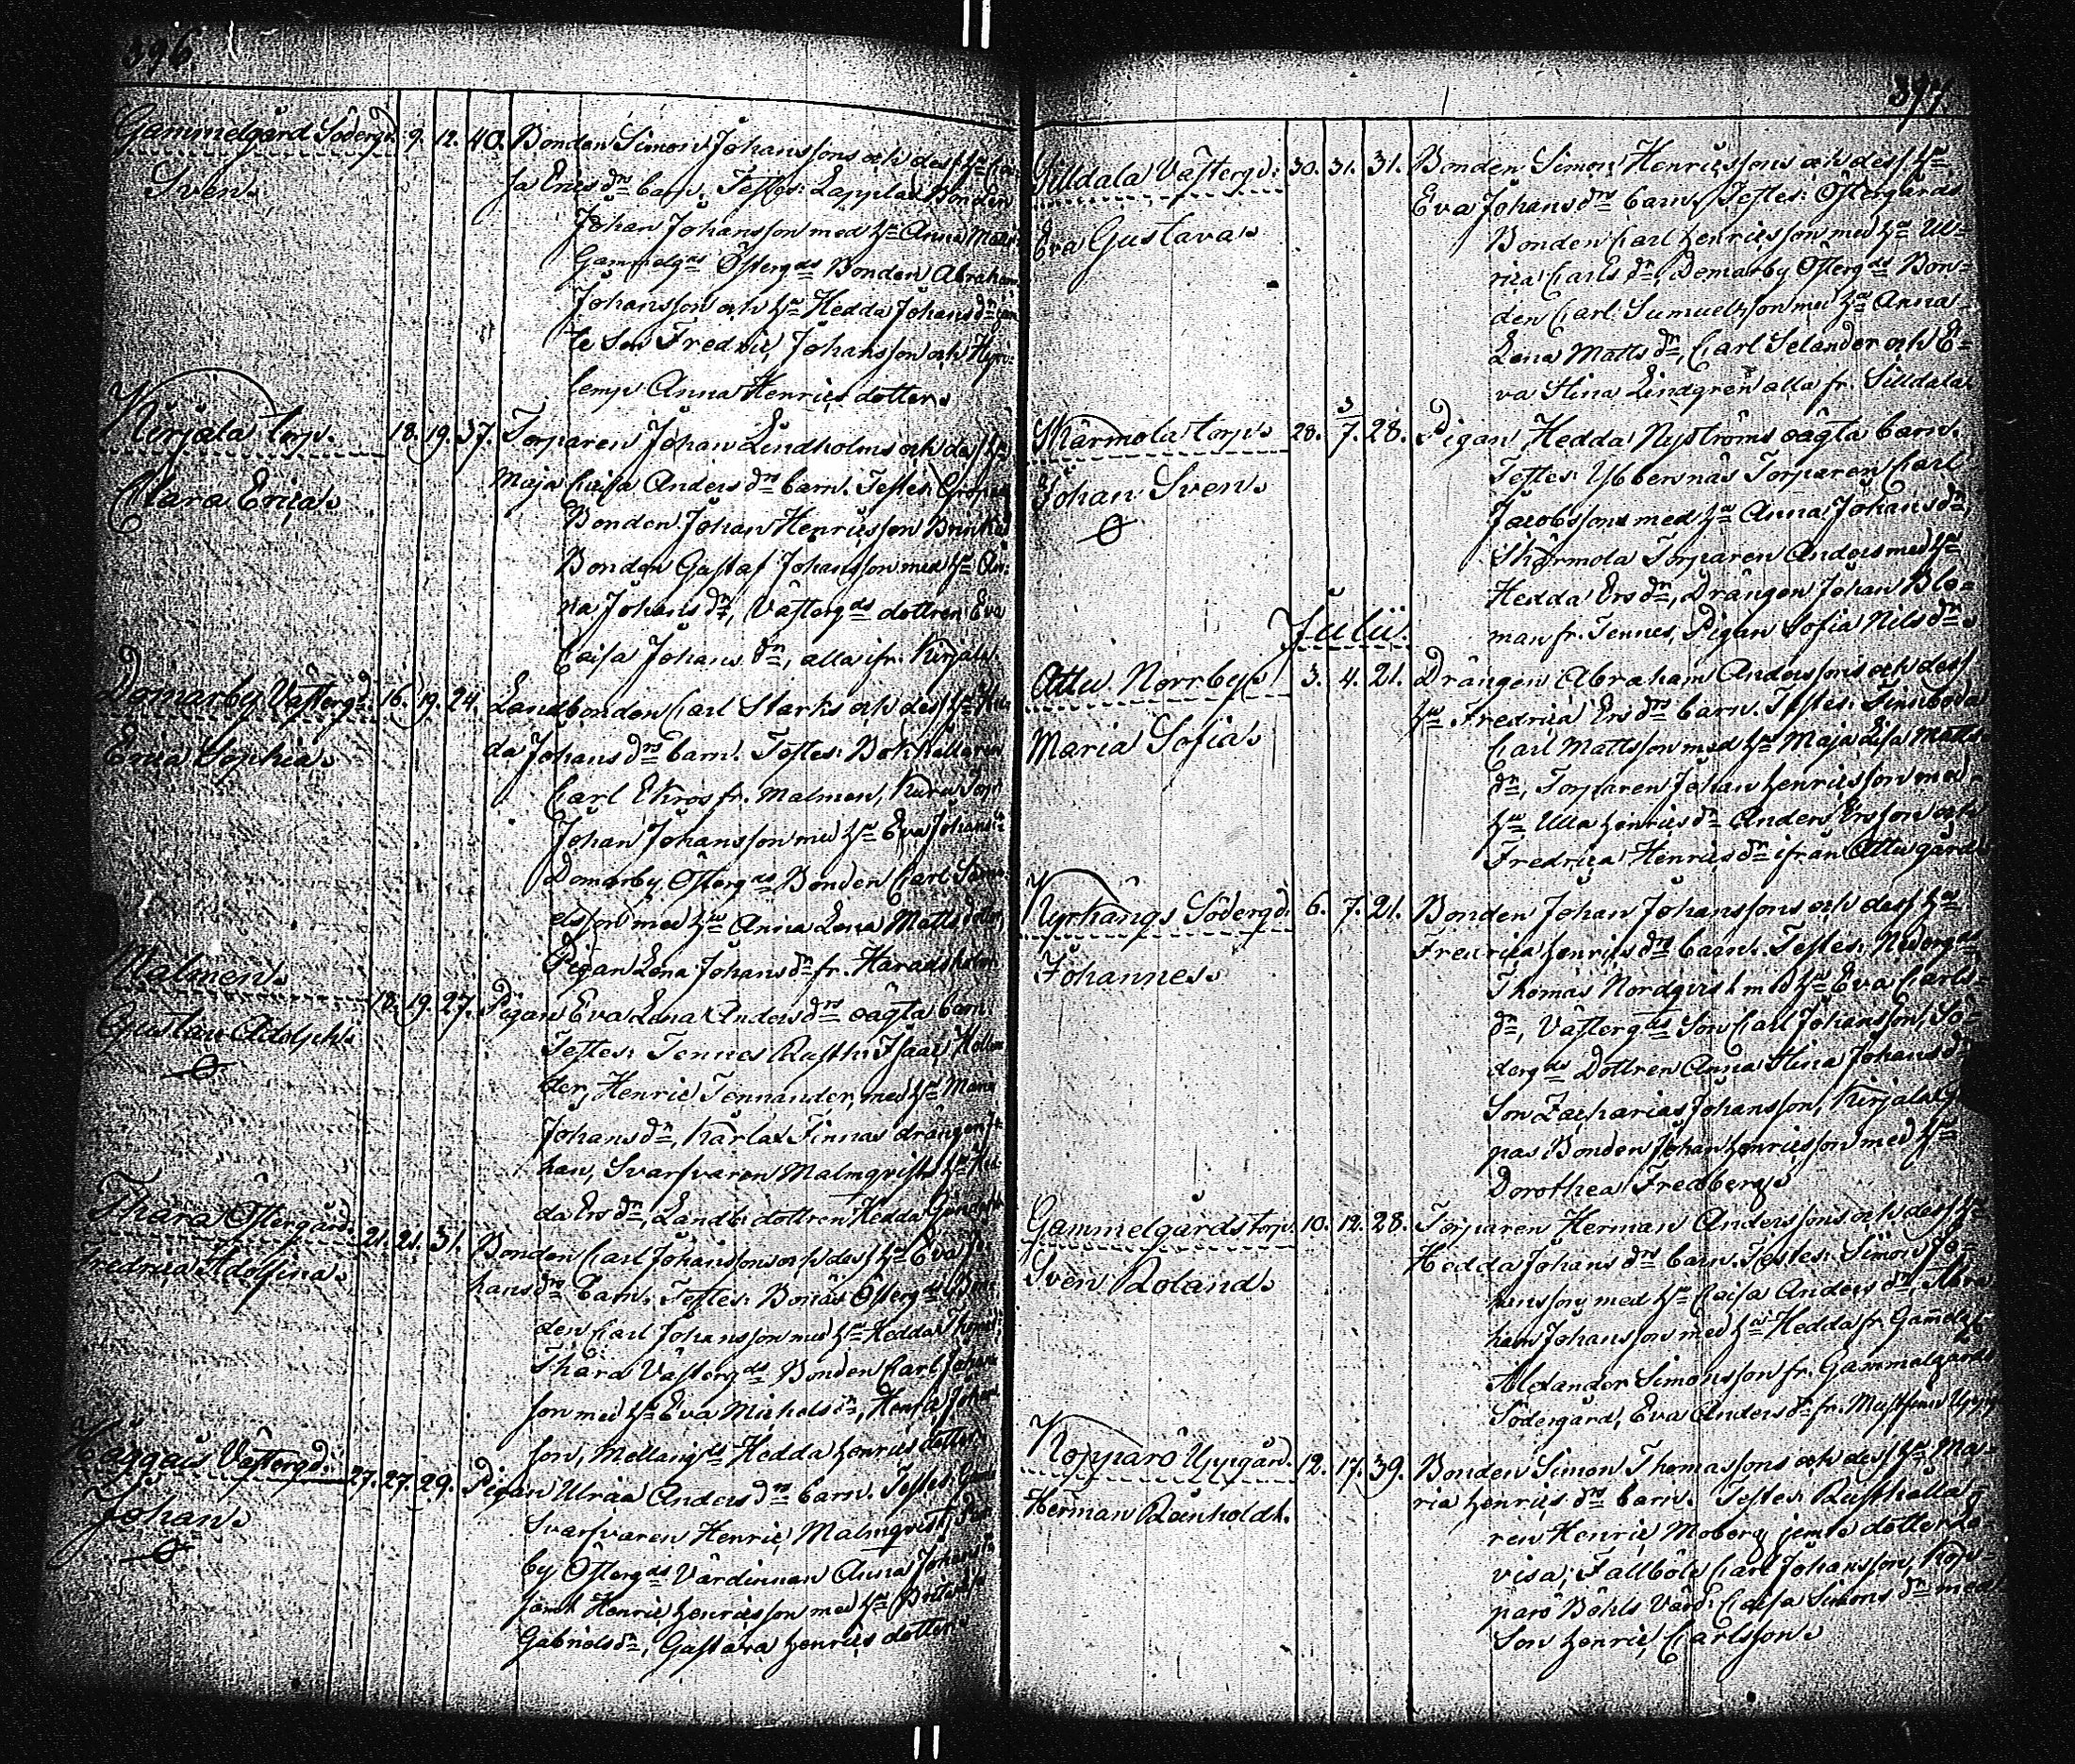 396.
Gammelgård Söderg. 9. 12. 40. Bonden Simon Johanssons och dess Hu Cai-
Sven. sa Erics drs barn. Testes: Lappila Bonden
Johan Johansson med Hu Anna Matts
Gammelgds Österg ds Bonden Abraham
Johansson och Hu Hedda Johans dr jem-
te Son Fredric Johansson och
Anna Henrics dotter.
Kirjala torp. 18. 19. 37. Torparen Johan Lindholms och dess Hu
Clara Erica. Maja Caisa Anders drs barn. Testes:
Bonden Johan Henricsson
Bonden Gustaf Johansson med Hu An-
na Johans dr, Västerg ds dottren Eva
Caisa Johans dr, alla ifr. Kirjala.
Domarby Västergd. 16. 19. 24. Landbonden Carl Starks och dess Hu
Erica Sophia. da Johans drs barn. Testes: Bokhållaren
Carl Ekros fr. Malmen,
Johan Johansson med Hu Eva Johans dr
Domarby Österg ds Bonden Carl Samu-
elsson med Hu Anna Lena Matts dotter,
Pigan Lena Johans dr fr.
Malmen. 18. 19. 27. Pigan Eva Lena Anders drs oägta barn.
Gustav Adolph. Testes: Tennes Rusth. Isaac Hellen-
der, Henric Tennander, med Hu Maria
Johans dr, Karlax Finnas drängen Jo-
han, Svarfvaren Malmqvists Hu Hed-
da Ers dr, Landb. dottren Hedda
Thära Östergård. 21. 21. 31. Bonden Carl Johanssons och dess Hu Eva Jo-
Fredrica Adolfina. hans drs barn. Testes: Bonäs Österg ds Bon-
den Carl Johansson med Hu Hedda Thomas
Thära Västerg ds Bonden Carl Johans-
son med Hu Eva Michels dr, Henric Johans-
son, Mellang ds Hedda Henrics dotter.
Haggais Västergd: 27. 27. 29. Pigan Ulrica Anders drs barn. Testes:
Johan. Svarfvaren Henric Malmqvist,
by Österg ds Värdinnan Anna Johans dr
samt Henric Henricsson med Hu
Gabriels dr, Gustava Henrics dotter.
397
Silldala Västergd: 30. 31. 31. Bonden Simon Henricssons och dess Hu
Eva Gustava. Eva Johans drs barn. Testes: Östergårds
Bonden Carl Henricsson med Hu Ul-
rica Carls dr, Domarby Österg ds Bon-
den Carl Samuelsson med Hu Anna
Lena Matts dr, Carl Selander och E-
va Stina Lindgren alla fr. Silldala.
Skärmola torp. 28. 3/7. 28. Pigan Hedda Nyströms oägta barn.
Johan Sven. Testes: Ybbersnäs Torparen Carl
Jacobssons med Hu Anna Johans dr,
Skärmola Torparen Anders med Hu
Hedda Ers dr, Drängen Johan Blo-
man fr. Tennes, Pigan Sofia Nils dr.
Julii.
Attu Norrby. 3. 4. 21. Drängen Abraham Anderssons och dess
Maria Sofia. Hu Fredrica Ers drs barn. Testes: Finnbova
Carl Mattsson med Hu Maja Lisa Matts
dr, Torparen Johan Henricsson med
Hu Ulla Henrics dr Anders Ersson och
Fredrica Henrics dr ifrån Attu gårds
Kyrkängs Södergd: 6. 7. 21. Bonden Johan Johanssons och dess Hu
Johannes. Fredrica Henrics drs barn. Testes: Niderg ds
Thomas Nordqvist med Hu Eva Carls
dr, Västerg ds Son Carl Johansson, Sö-
derg ds Dottren Anna Stina Johans dr
Son Zacharias Johansson, Kirjala
pas Bonden Johan Henricsson med Hu
Dorothea Fredberg.
Gammelgårds torp. 10. 12. 28. Torparen Herman Anderssons och dess Hu
Sven Roland. Hedda Johans drs barn. Testes: Simon Jo-
hansson med Hu Caisa Anders dr, Abra-
ham Johansson med Hu Hedda fr. Gamelgd
Alexander Simonsson fr. Gammalgårds
Södergård, Eva Anders dr fr.
Kopparö Uppgård. 12. 17. 39. Bonden Simon Thomassons och dess Hu Ma-
Herman Reinholdt. ria Henrics drs barn. Testes: Rusthålla-
ren Henric Moberg jemte dotter Lo-
visa, Fallböle Carl Johansson, Kop-
parö Böhls Värd: Caisa Simons dr med
Son Henric Carlsson.